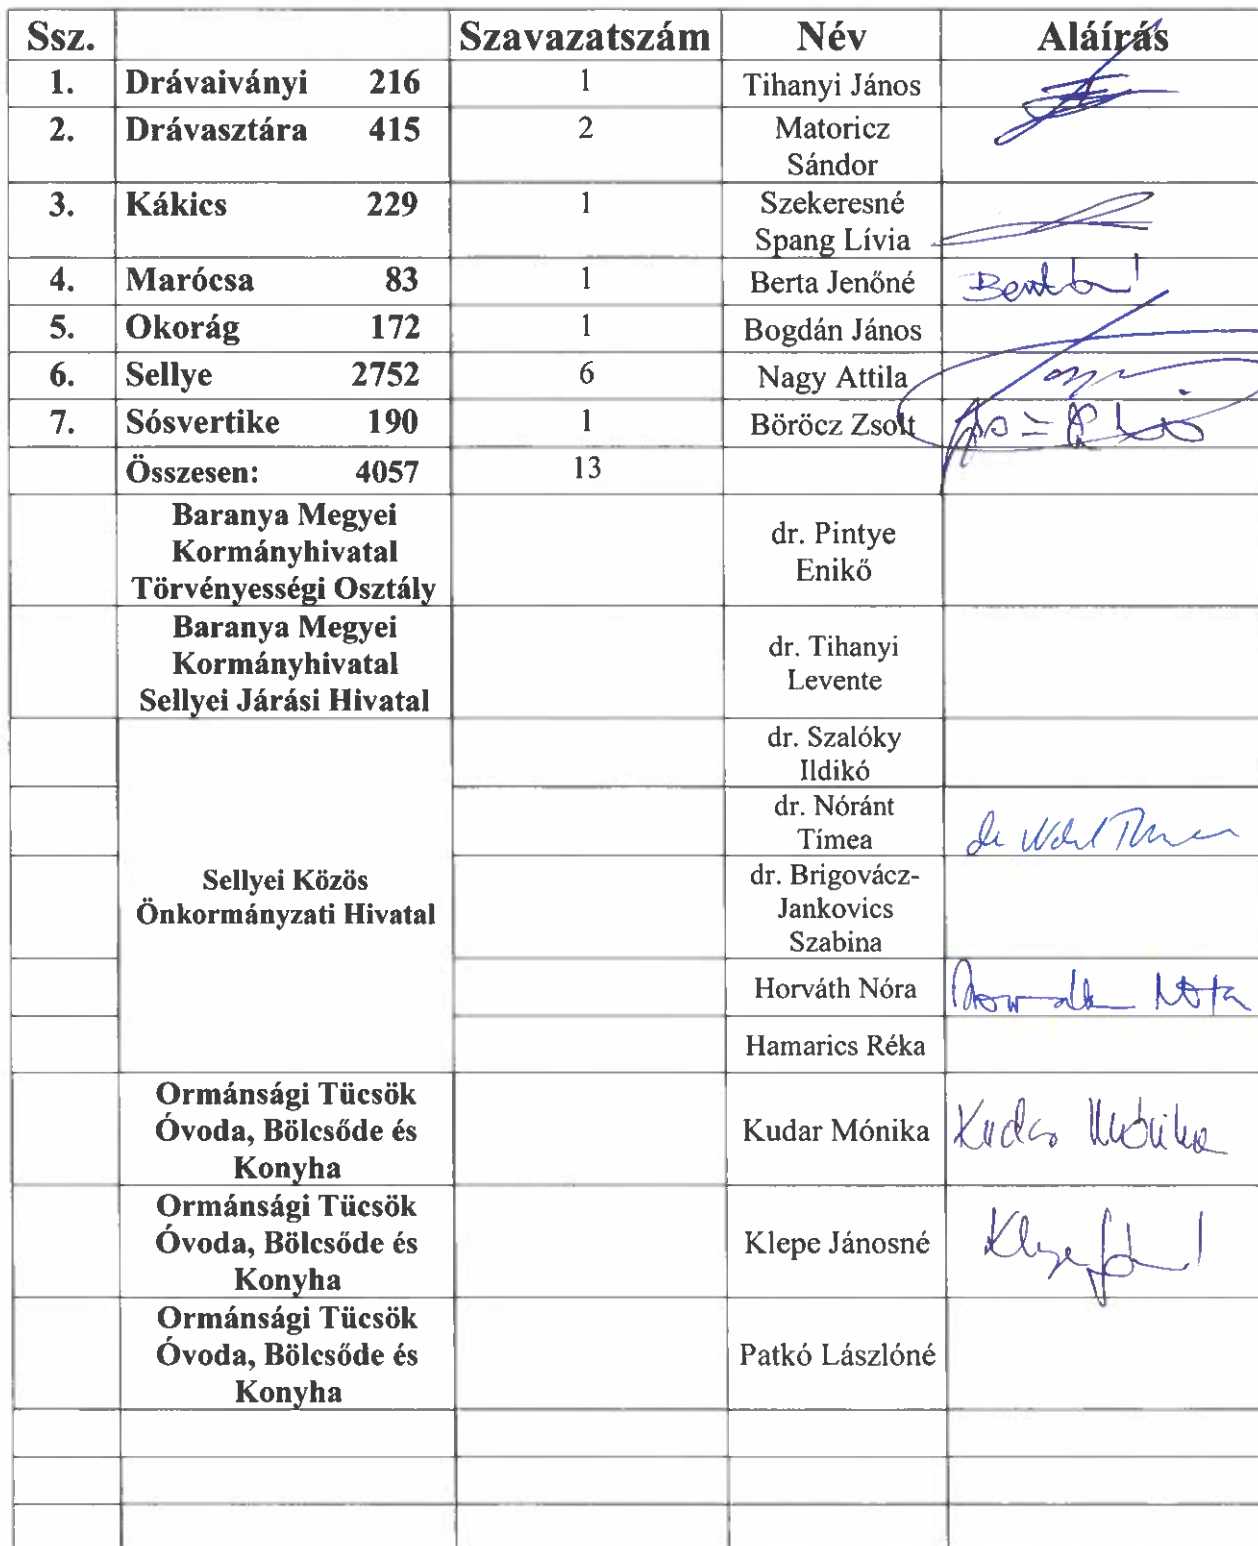 Ssz. Szavazatszám Név Aláírás
1. Drávaiványi 216 1 Tihanyi János
2. Drávasztára 415 2 Matoricz
Sándor
3. Kákics 229 1 Szekeresné
Spang Lívia
4. Marócsa 83 1 Berta Jenőné
5. Okorág 172 1 Bogdán János
6. Sellye 2752 6 Nagy Attila
7. Sósvertike 190 1 Böröcz Zsolt
Összesen: 4057 13
Baranya Megyei
Kormányhivatal
Törvényességi Osztály
dr. Pintye
Enikő
Baranya Megyei
Kormányhivatal
Sellyei Járási Hivatal
dr. Tihanyi
Levente
Sellyei Közös
Önkormányzati Hivatal
dr. Szalóky
Ildikó
dr. Nóránt
Tímea
dr. Brigovácz-
Jankovics
Szabina
Horváth Nóra
Hamarics Réka
Ormánsági Tücsök
Óvoda, Bölcsőde és
Konyha
Kudar Mónika Kudar Mónika
Ormánsági Tücsök
Óvoda, Bölcsőde és
Konyha
Klepe Jánosné
Ormánsági Tücsök
Óvoda, Bölcsőde és
Konyha
Patkó Lászlóné